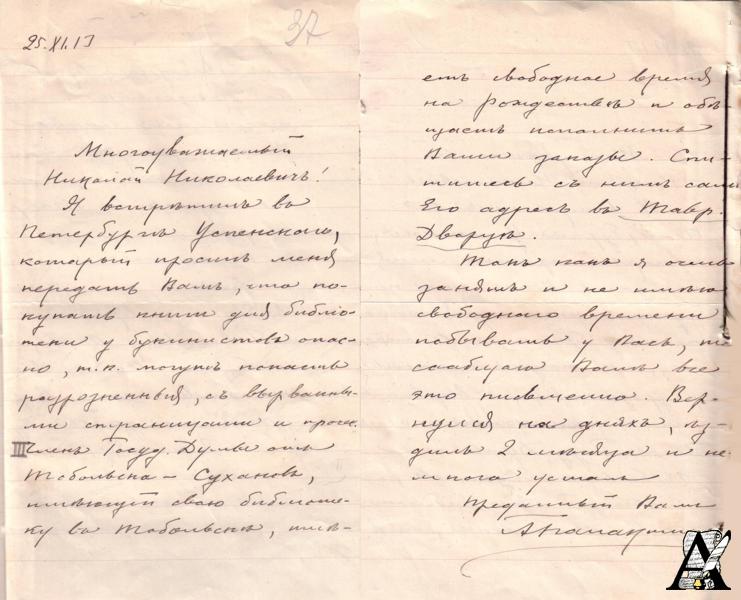 37
25.XI.13
Многоуважаемый
Николай Николаевичъ!
Я встрѣтилъ въ
Петербургѣ Успенскаго,
который проситъ меня
передать Вамъ, что по-
купать книги для библіо-
теки у букинистовъ опас-
но, т.к. могутъ попасть
разрозненныя, съ вырванны-
ми страницами и проч.
III Членъ Госуд. Думы отъ
Тобольска – Сухановъ,
имѣющій свою библіоте-
ку въ Тобольскѣ, имѣ-
етъ свободное время
на Рождествѣ и обѣ-
щаетъ исполнить
Ваши заказы. Спи-
шитесь съ нимъ сами
Его адресъ въ Тавр.
Дворцѣ.
Такъ какъ я очень
занятъ и не имѣю
свободнаго времени
побывать у Васъ, то
сообщаю Вамъ все
это письменно. Вер-
нулся на дняхъ, ѣз-
дилъ 2 мѣсяца и не-
много усталъ
Преданный Вамъ
А